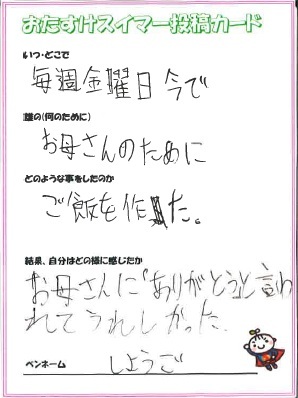 おたすけスイマー投稿カード
いつ・どこで
毎週金曜日今で
誰の(何のために)
お母さんのために
どのような事をしたのか
ご飯を作た。
結果、自分はどの様に感じたか
お母さんに「ありがとう」と言わ
れてうれしかった。
ペンホーム
しようご